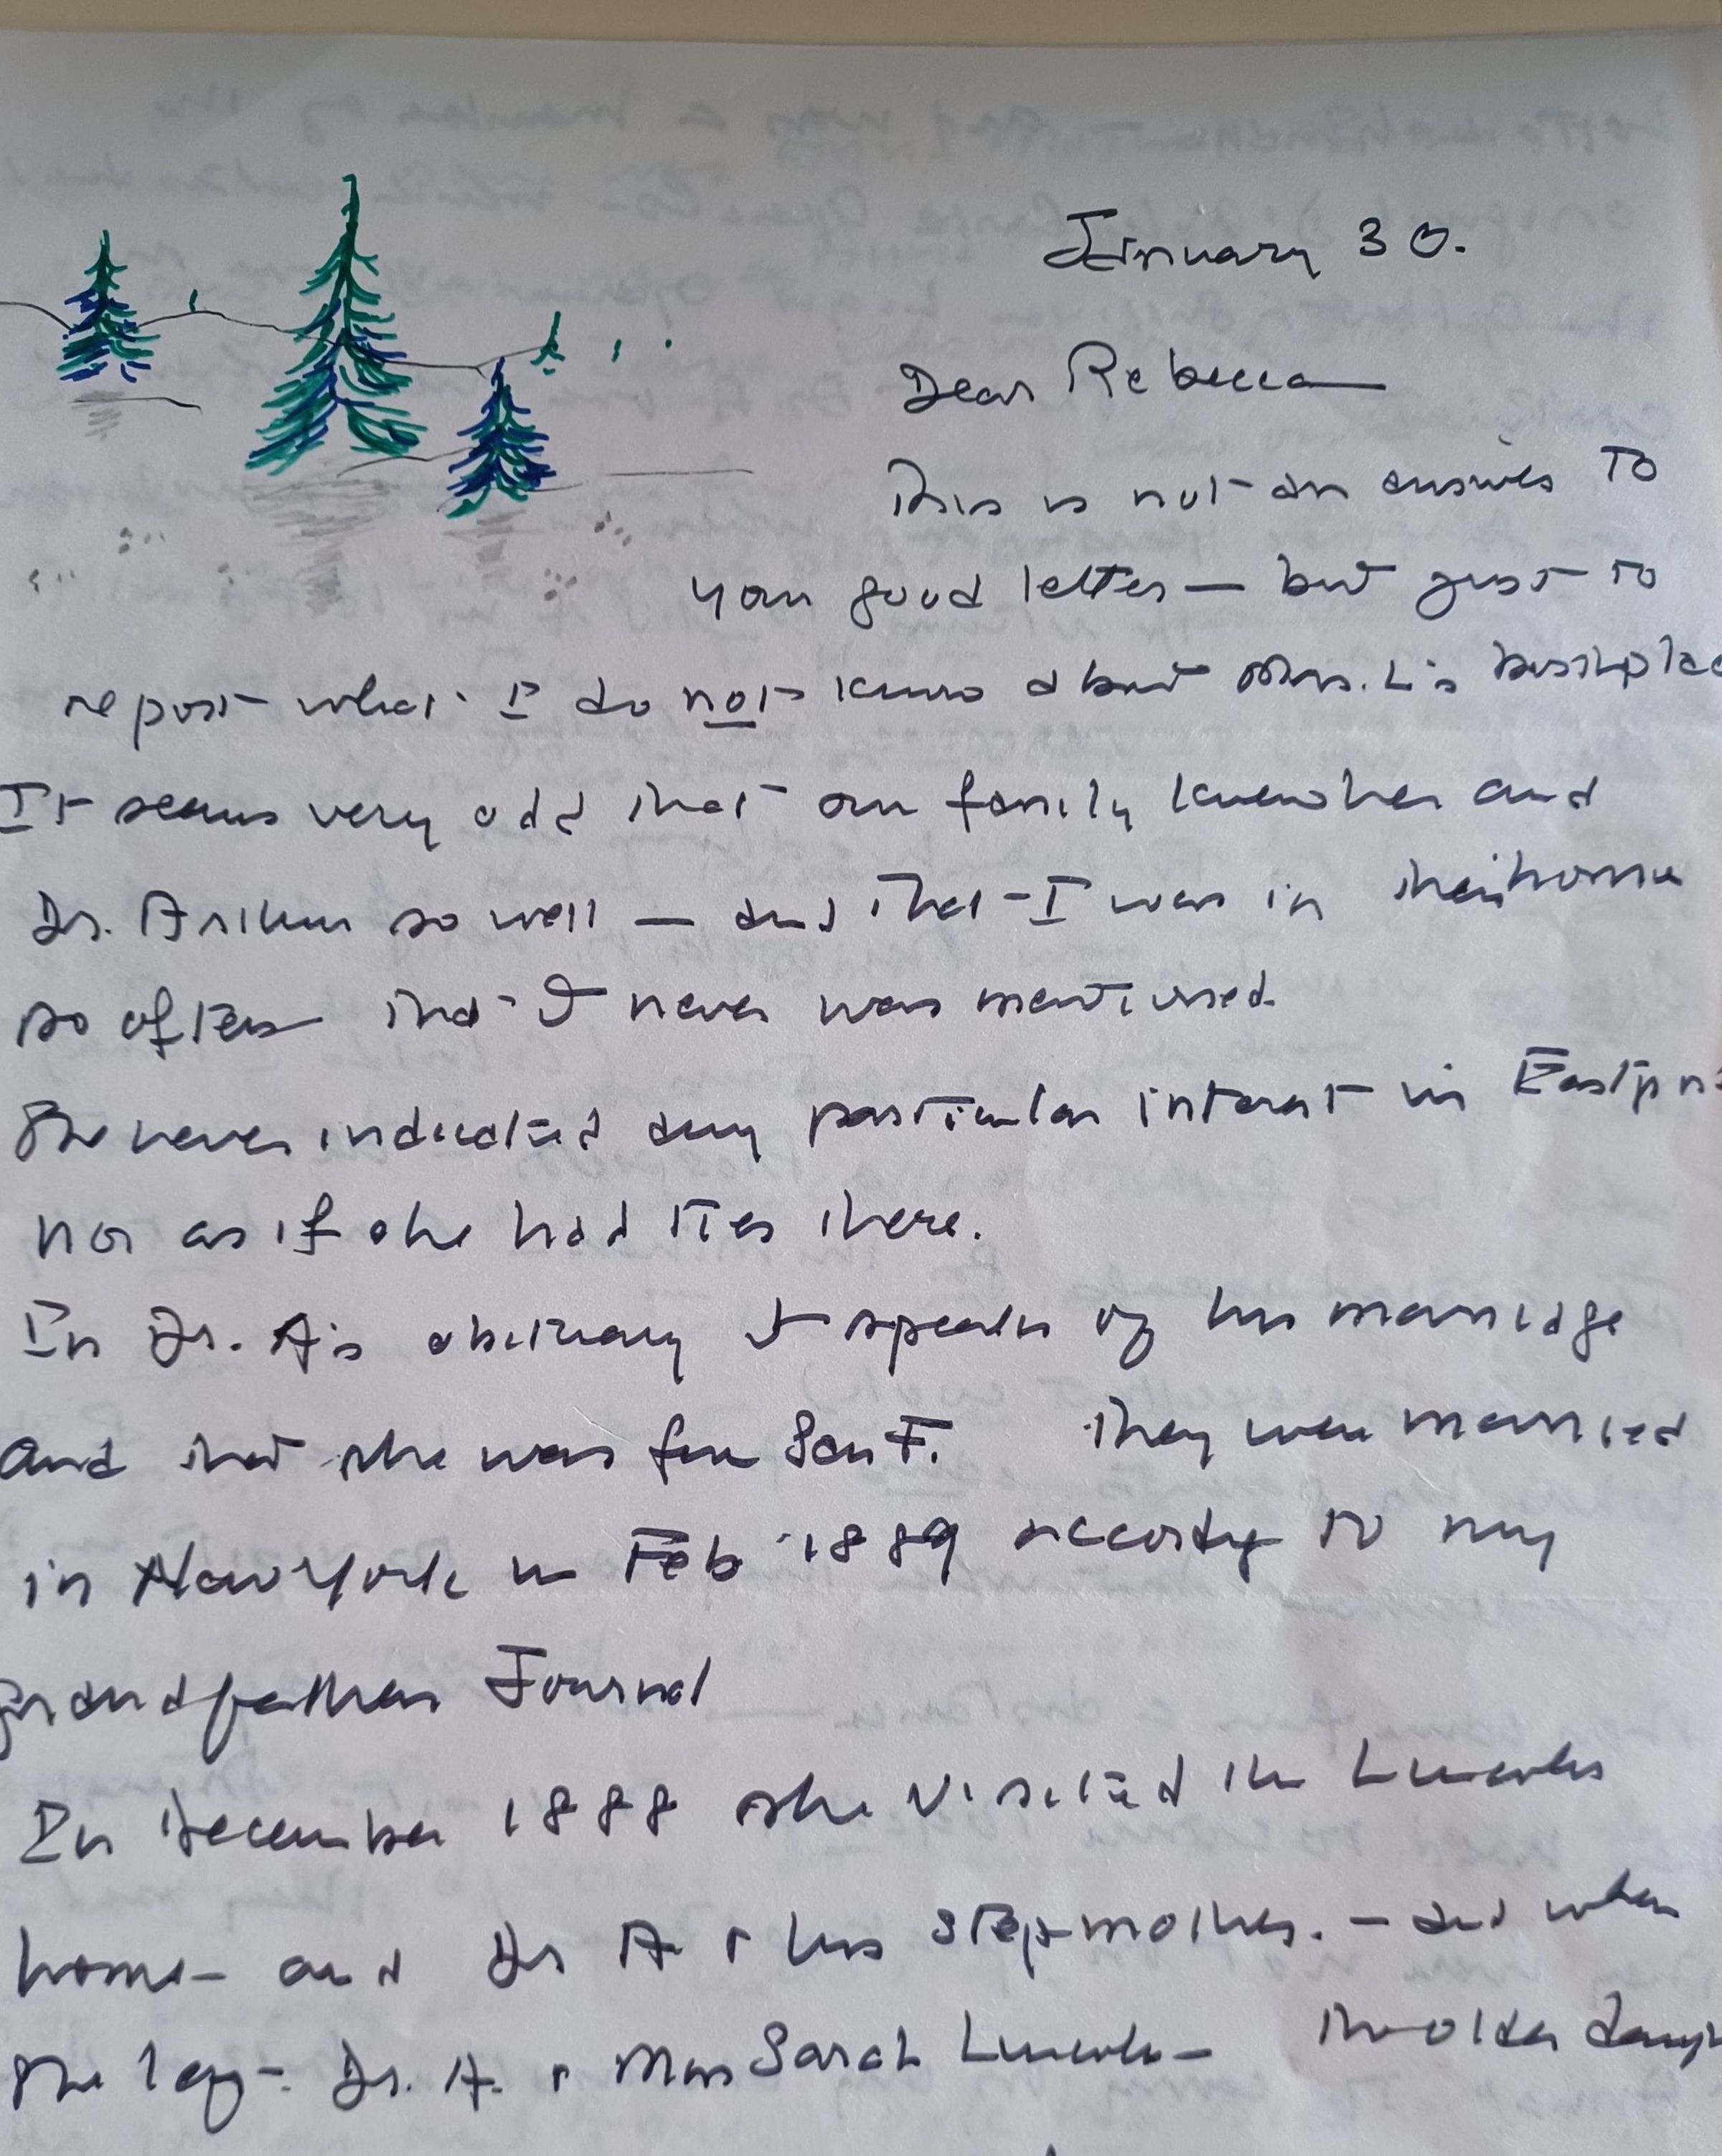 January 30.
Dear Rebecca —
This is not an answer to
your good letter — but just to
report what I do not know about Mrs. L's birthplac
It seems very odd that our family knew her and
Dr. Arthur so well — and that I was in their home
so often that it never was mentioned.
She never indicated any particular interest in Eastpo
nor as if she had ties there.
In Dr. A's obituary it speaks of his marriage
and that she was from San F. They were married
in New York in Feb 1889 according to my
grandfathers Journal
In December 1888 she visited the Lincolns
home — and Dr A + his stepmother. — and when
she left — Dr. A. + Miss Sarah Lincoln — the older daugh